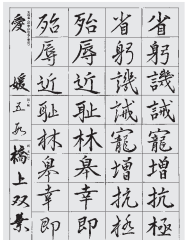 省躬譏誡寵增抗極
省躬譏誡寵增抗極
殆辱近耻林皐幸即
殆辱近耻林皐幸即
愛媛 五 橋上双葉